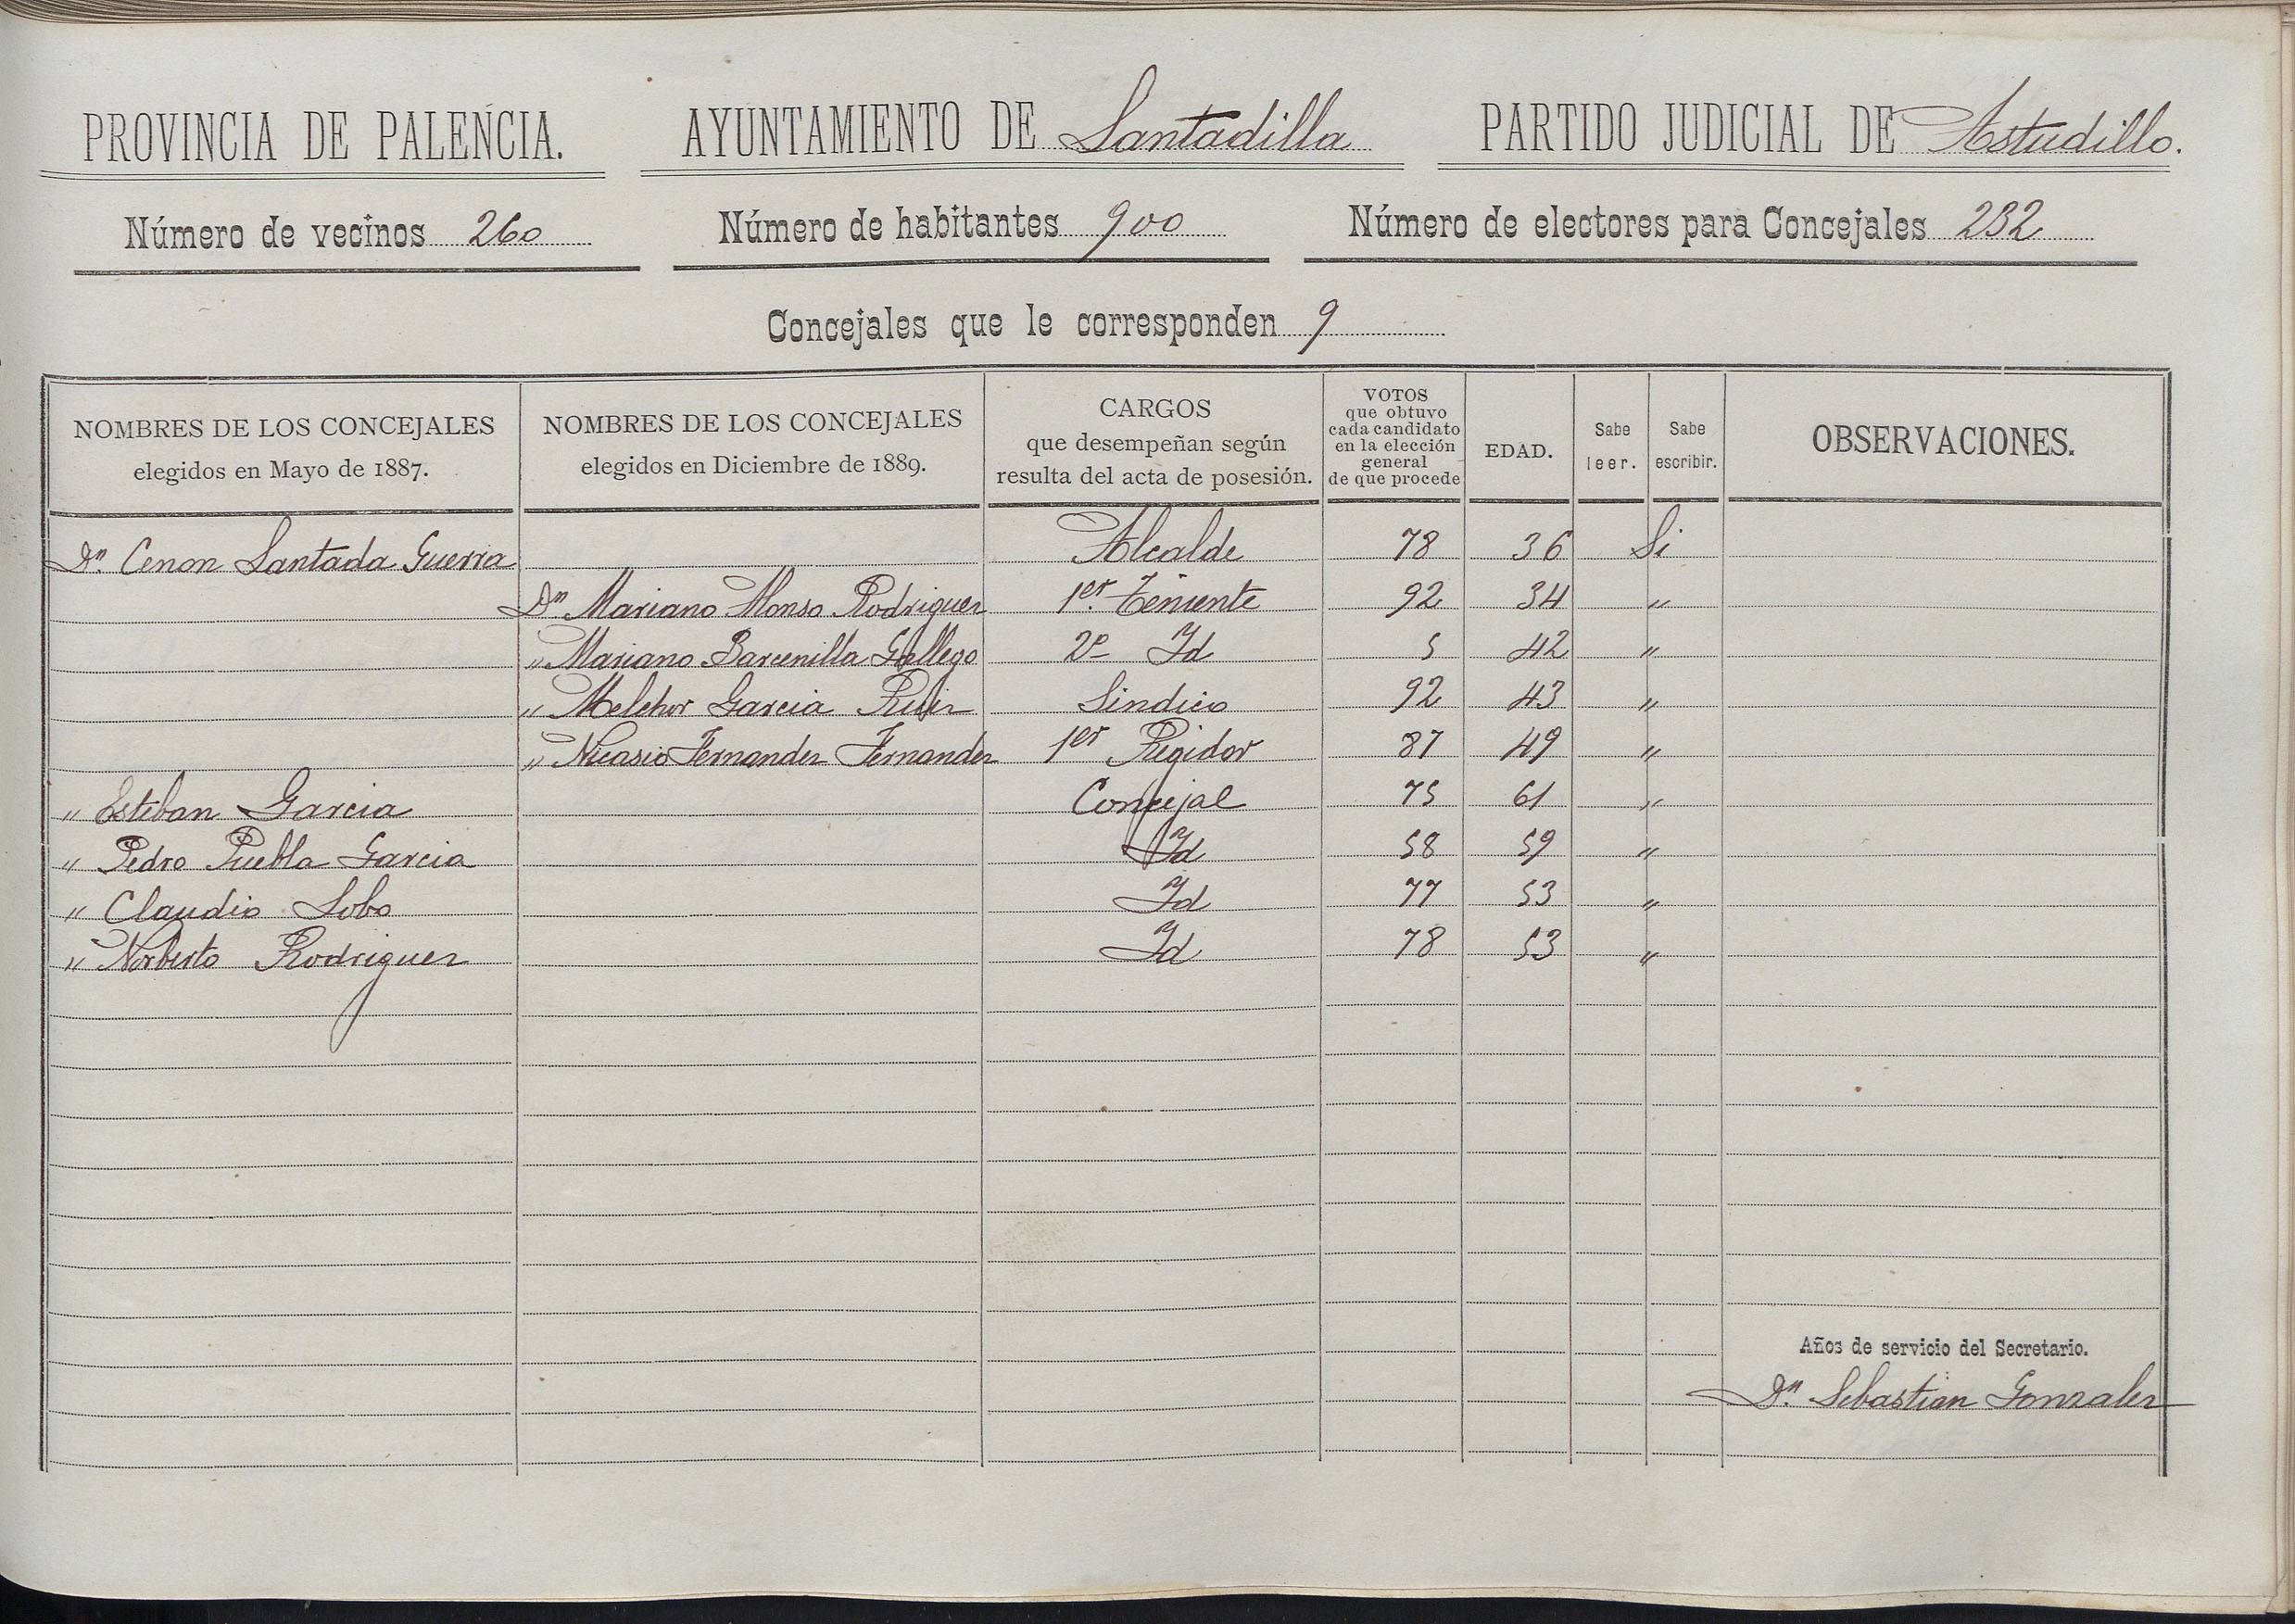 PROVINCIA DE PALENCIA. AYUNTAMIENTO DE Santadilla PARTIDO JUDICIAL DE Astudillo.
Número de vecinos 260 Número de habitantes 900 Número de electores para Concejales 232
Concejales que le corresponden 9
NOMBRES DE LOS CONCEJALES elegidos en Mayo de 1887. NOMBRES DE LOS CONCEJALES elegidos en Diciembre de 1889. CARGOS que desempeñan según resulta del acta de posesión. VOTOS que obtuvo cada candidato en la elección general de que procede EDAD. Sabe leer. Sabe escribir. OBSERVACIONES.
Dn. Cenon Santada Guerra Alcalde 78 36 Si
Dn Mariano Alonso Rodriguez 1er. Teniente 92 34 "
" Mariano Barcenilla Gallego 2º Id 5 42 "
" Melchor Garcia Ruiz Sindico 92 43 "
" Nicasio Fernandez Fernandez 1er Regidor 87 49 "
" Esteban Garcia Concejal 75 61 "
" Pedro Puebla Garcia Id 58 59 "
" Claudio Lobo Id 77 53 "
" Norberto Rodriguez Id 78 53 "
Años de servicio del Secretario.
Dn. Sebastian Gonzalez